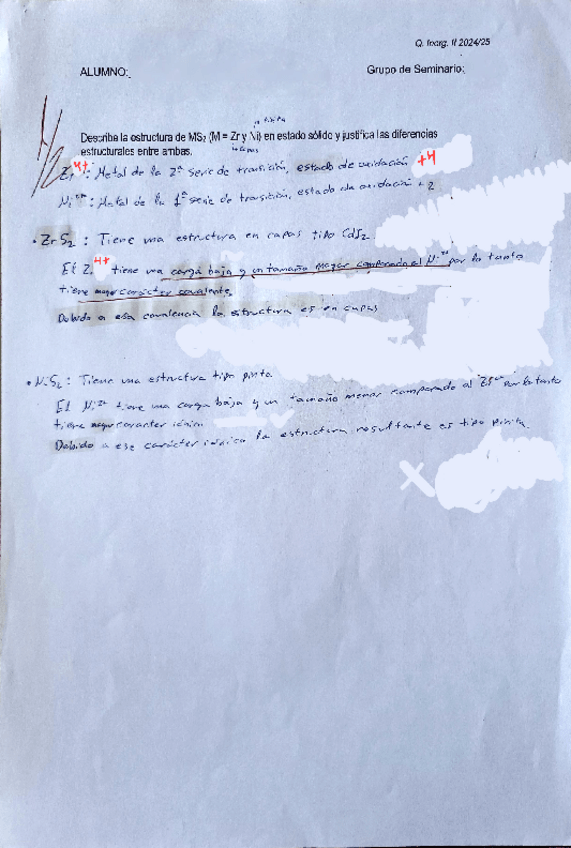 Q. Inorg. II 2024/25
ALUMNO:
Grupo de Seminario:
Describa la estructura de MS₂ (M = Zr y Ni) en estado sólido y justifica las diferencias
en capas
estructurales entre ambas.
Zr⁴⁺: Metal de la 2ª serie de transición, estado de oxidación +4
Ni²⁺: Metal de la 1ª serie de transición, estado de oxidación +2
• ZrS₂: Tiene una estructura en capas tipo CdI₂
El Zr⁴⁺ tiene una carga baja y un tamaño mayor comparado al Ni²⁺ por lo tanto
tiene mayor carácter covalente.
Debido a esa covalencia la estructura es en capas
• NiS₂: Tiene una estructura tipo pirita
El Ni²⁺ tiene una carga baja y un tamaño menor comparado al por lo tanto
tiene mayor caracter iónico
Debido a ese carácter iónico la estructura resultante es tipo pirita
X